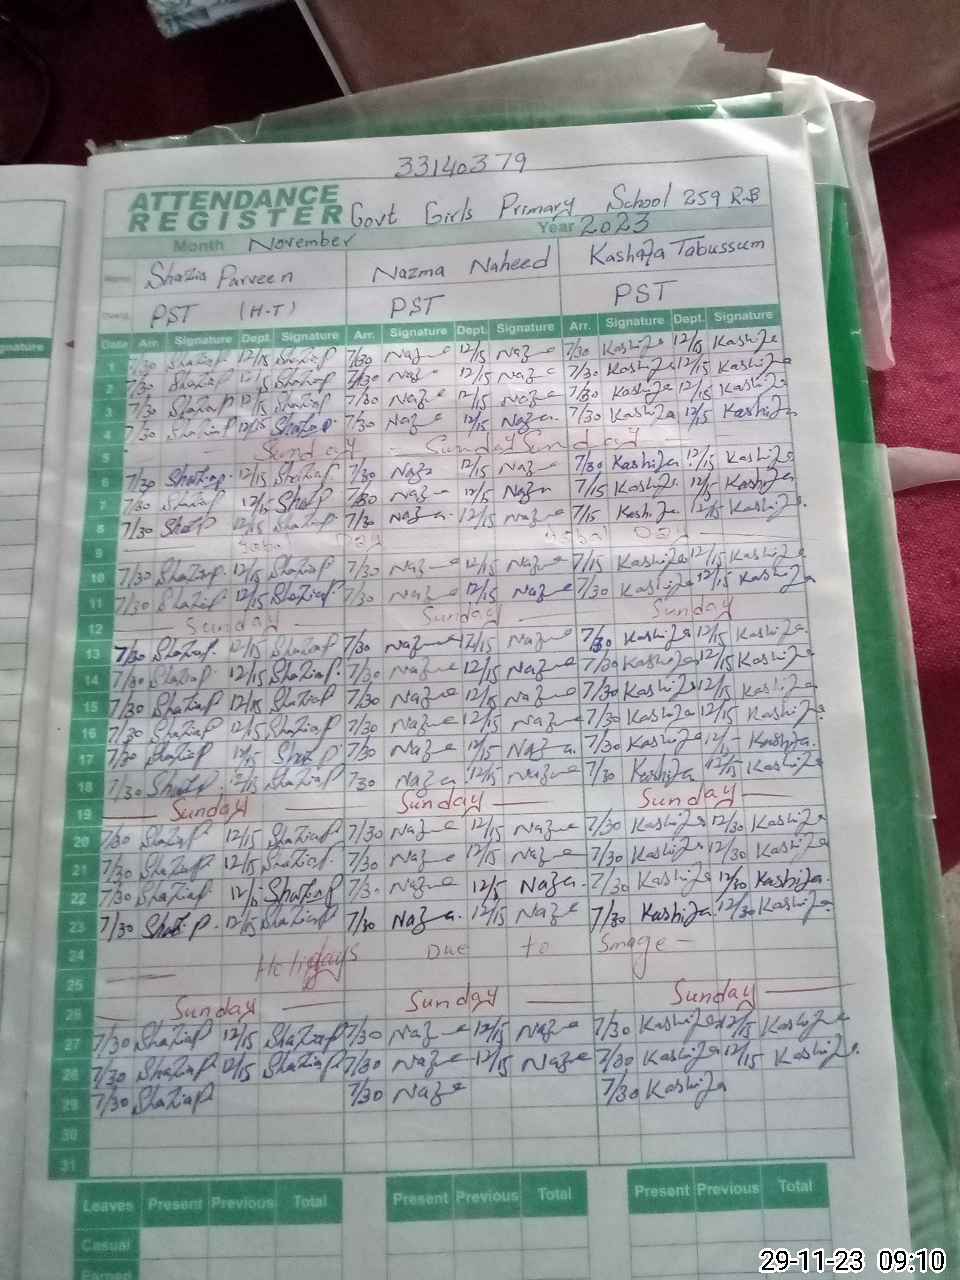 33140379
ATTENDANCE
REGISTER Govt Girls Primary School 259 R.B
Month November Year 2023
Name Shazia Parveen Nazma Naheed Kashifa Tabussum
Desig. PST (H-T) PST PST
Date Arr. Signature Dept. Signature Arr. Signature Dept. Signature Arr. Signature Dept. Signature
1 7/30 ShaziaP 12/15 ShaziaP 7/30 Nazme 12/15 Nazme 7/30 Kashifa 12/15 Kashifa
2 7/30 ShaziaP 12/15 ShaziaP 7/30 Nazme 12/15 Nazme 7/30 Kashifa 12/15 Kashifa
3 7/30 ShaziaP 12/15 ShaziaP 7/30 Nazme 12/15 Nazme 7/30 Kashifa 12/15 Kashifa
4 7/30 ShaziaP 12/15 ShaziaP 7/30 Nazme 12/15 Nazma 7/30 Kashifa 12/15 Kashifa
5 Sunday Sunday Sunday
6 7/30 ShaziaP 12/15 ShaziaP 7/30 Nazme 12/15 Nazme 7/30 Kashifa 12/15 Kashifa
7 7/30 ShaziaP 12/15 ShazP 7/30 Nazme 12/15 Nazma 7/15 Kashifa 12/15 Kashifa
8 7/30 ShazP 12/15 ShaziaP 7/30 Nazma 12/15 Nazme 7/15 Kashifa 12/15 Kashifa
9 Iqbal Day Iqbal Day
10 7/30 ShaziaP 12/15 ShaziaP 7/30 Nazme 12/15 Nazme 7/15 Kashifa 12/15 Kashifa
11 7/30 ShaziaP 12/15 ShaziaP 7/30 Nazme 12/15 Nazme 7/30 Kashifa 12/15 Kashifa
12 Sunday Sunday Sunday
13 7/30 ShaziaP 12/15 ShaziaP 7/30 Nazme 12/15 Nazme 7/30 Kashifa 12/15 Kashifa
14 7/30 ShaziaP 12/15 ShaziaP 7/30 Nazme 12/15 Nazme 7/30 Kashifa 12/15 Kashifa
15 7/30 ShaziaP 12/15 ShaziaP 7/30 Nazme 12/15 Nazme 7/30 Kashifa 12/15 Kashifa
16 7/30 ShaziaP 12/15 ShaziaP 7/30 Nazme 12/15 Nazme 7/30 Kashifa 12/15 Kashifa
17 7/30 ShaziaP 12/15 ShazP 7/30 Nazme 12/15 Nazma 7/30 Kashifa 12/15 Kashifa
18 7/30 ShazP 12/15 ShaziaP 7/30 Nazma 12/15 Nazme 7/30 Kashifa 12/15 Kashifa
19 Sunday Sunday Sunday
20 7/30 ShaziaP 12/15 ShaziaP 7/30 Nazme 12/15 Nazme 7/30 Kashifa 12/30 Kashifa
21 7/30 ShaziaP 12/15 ShaziaP 7/30 Nazme 12/15 Nazme 7/30 Kashifa 12/30 Kashifa
22 7/30 ShaziaP ShaziaP 7/30 Nazme 12/15 Nazma 7/30 Kashifa 12/30 Kashifa
23 7/30 ShazP 12/15 ShaziaP 7/30 Nazma 12/15 Nazme 7/30 Kashifa 12/30 Kashifa
24 Holidays Due to Smoge
25
26 Sunday Sunday Sunday
27 7/30 ShaziaP 12/15 ShaziaP 7/30 Nazme 12/15 Nazme 7/30 Kashifa 12/15 Kashifa
28 7/30 ShaziaP 12/15 ShaziaP 7/30 Nazme 12/15 Nazme 7/30 Kashifa 12/15 Kashifa
29 7/30 ShaziaP 7/30 Nazme 7/30 Kashifa
30
31
Leaves Present Previous Total Present Previous Total Present Previous Total
Casual
Earned
29-11-23 09:10